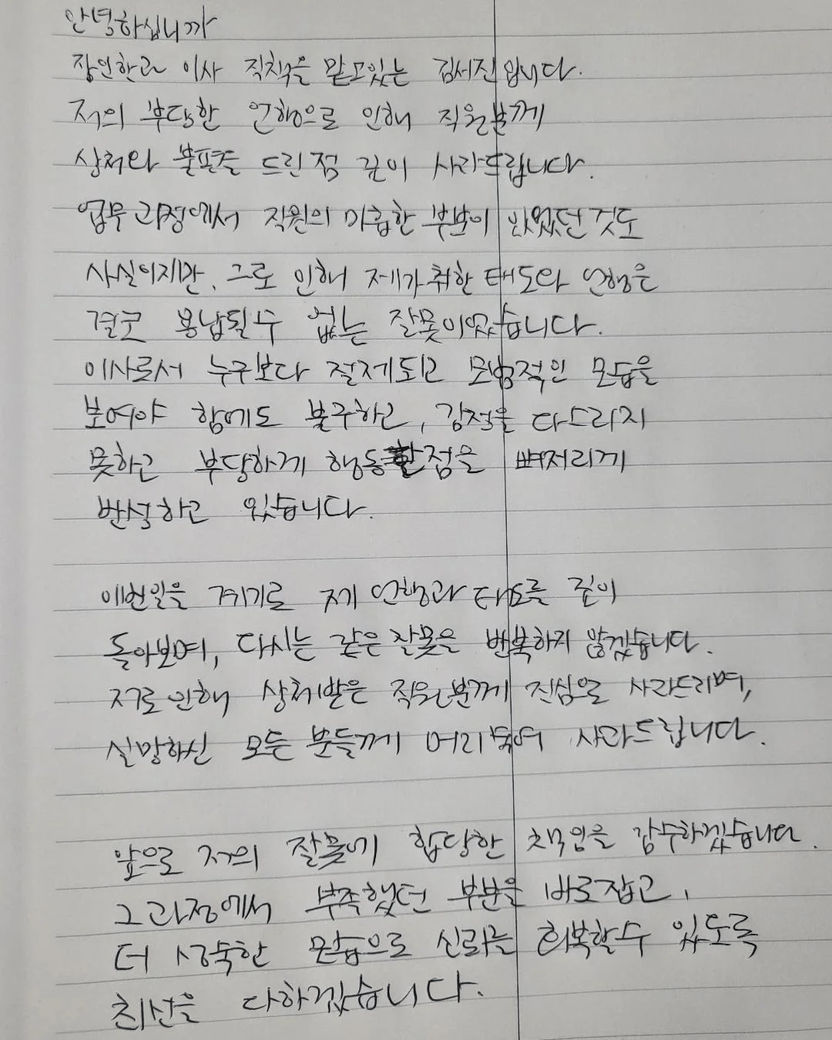 안녕하십니까
장인한과 이사 직책을 맡고있는 김서진입니다.
저의 부당한 언행으로 인해 직원분께
상처와 불편을 드린 점 깊이 사과드립니다.
업무 과정에서 직원의 미흡한 부분이 있었던 것도
사실이지만, 그로 인해 제가 취한 태도와 언행은
결코 용납될 수 없는 잘못이었습니다.
이사로서 누구보다 절제되고 모범적인 모습을
보여야 함에도 불구하고, 감정을 다스리지
못하고 부당하게 행동한 점을 뼈저리게
반성하고 있습니다.
이번일을 계기로 제 언행과 태도를 깊이
돌아보며, 다시는 같은 잘못을 반복하지 않겠습니다.
저로 인해 상처받은 직원분께 진심으로 사과드리며,
실망하신 모든 분들께 머리숙여 사과드립니다.
앞으로 저의 잘못에 합당한 책임을 감수하겠습니다.
그 과정에서 부족했던 부분을 바로잡고,
더 성숙한 모습으로 신뢰를 회복할 수 있도록
최선을 다하겠습니다.